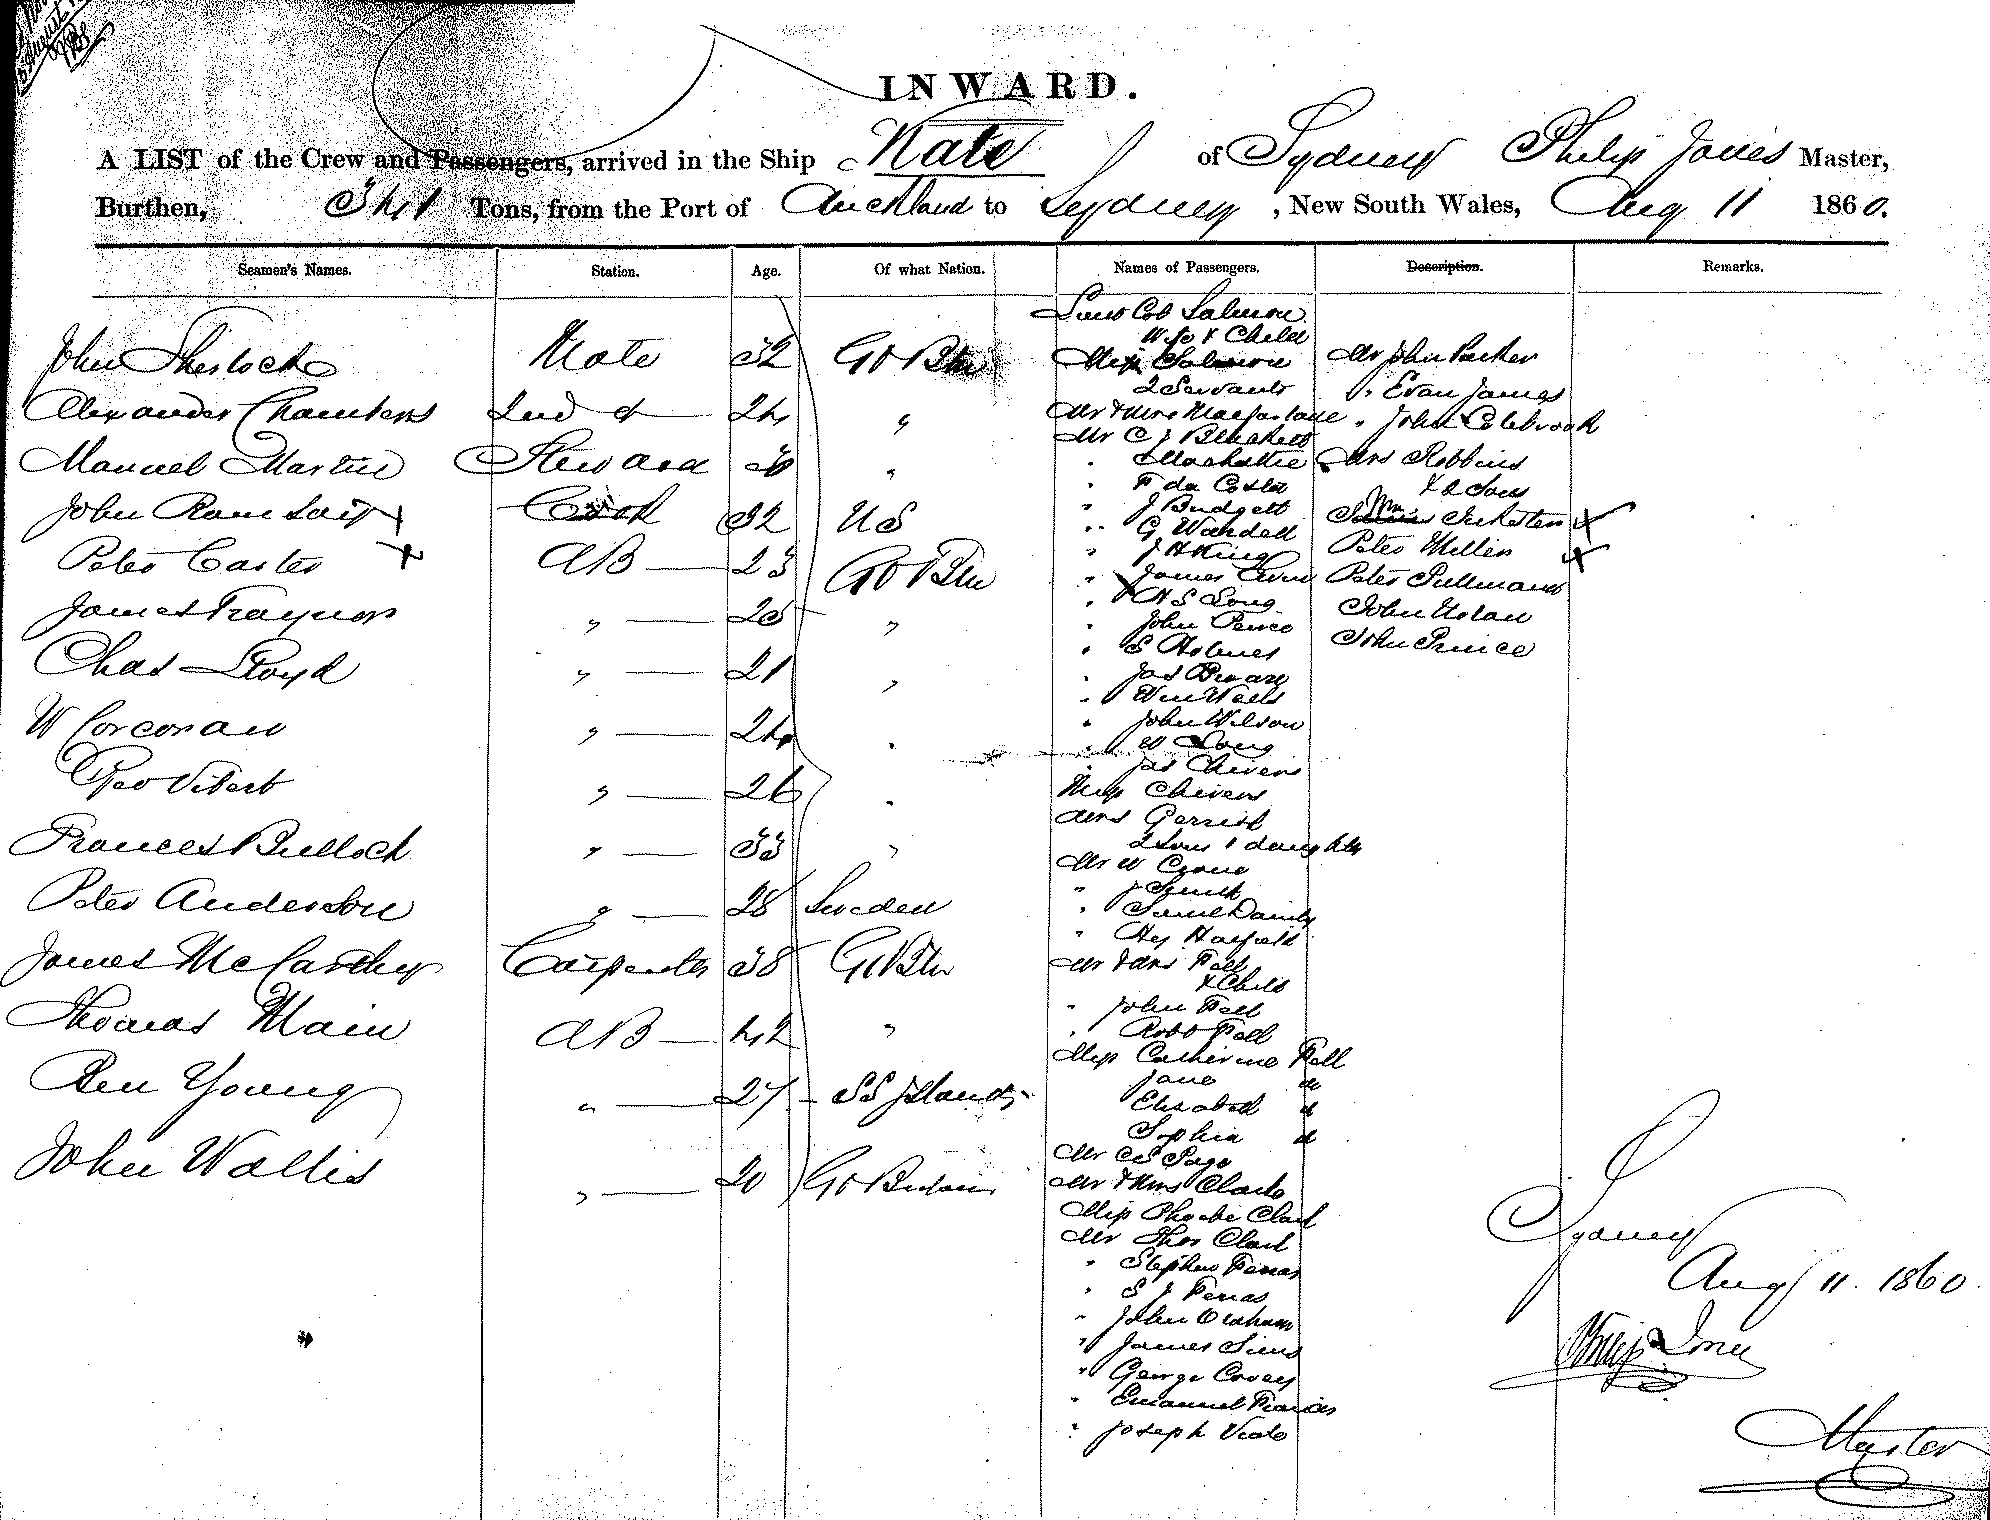 INWARD.
A LIST of the Crew and Passengers, arrived in the Ship Kate of Sydney Philip Jones Master,
Burthen, Tons, from the Port of Auckland to Sydney, New South Wales, Aug 11 1860.
Seamen's Names. Station. Age. Of what Nation. Names of Passengers. Description. Remarks.
John Sherlock Mate 32 Gt Btn
Alexander Chambers 2nd do 24 "
Manuel Martin Steward 30 "
John Ramsay x Cook 32 US
Peter Carter x AB 23 Gt Btn
James Traynor " 25 "
Chas Lloyd " 21 "
W Corcoran " 24 "
Geo Vibert " 26 "
Frances Bulloch " 33 "
Peter Anderson " 28 Sweden
James McCarthy Carpenter 38 Gt Btn
Thomas Main AB 42 "
Ben Young " 27 SS Islands
John Wallis " 20 Gt Britain
Lieut Col Salmon
Wife & Child
Miss Salmon
2 Servants
Mr & Mrs Macfarlane
Mr C J
"
" F da Costa
" J Budgett
" G Wardell
" J H King
" James
" H S Long
" John Peirce
" S Holmes
" Jas
" Wm Wells
" John Wilson
" W Long
" Jas Chivers
Miss Chivers
Mrs Gerrish
2 Sons 1 daughter
Mr W Crane
" J Smith
" Saml Dainty
" Hy Hatfield
Mr & Mrs Fell
& Child
" John Fell
" Robt Fell
Miss Catherine Fell
Jane do
Elizabeth do
Sophia do
Mr C S Page
Mr & Mrs Clark
Miss Phoebe Clark
Mr Thos Clark
" Stephen Ferras
" S J Ferras
" John Oldham
" James Sims
" George Covey
" Emanuel Francis
" Joseph
Mr John Parker
" Evan James
" John Colebrook
Mrs Robbins
& 2 Sons
x
Peter Miller x
Peter Pullman
John Nolan
John Prince
Sydney
Aug 11. 1860.
Philip Jones
Master